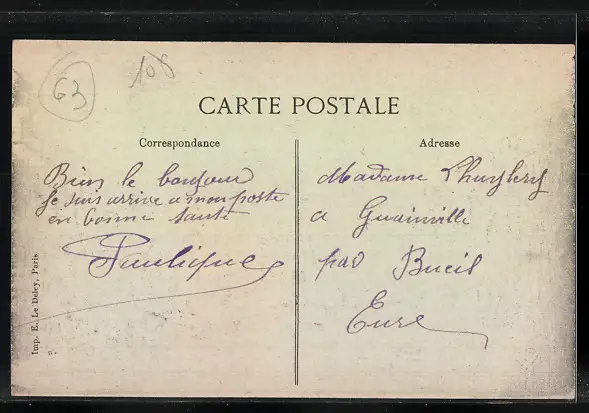 63
108
CARTE POSTALE
Correspondance
Bien le bonjour
je suis arrive a mon poste
en bonne santé
Paulique
Adresse
Madame
a Guainville
par Bueil
Eure
Imp. E. Le Deley, Paris